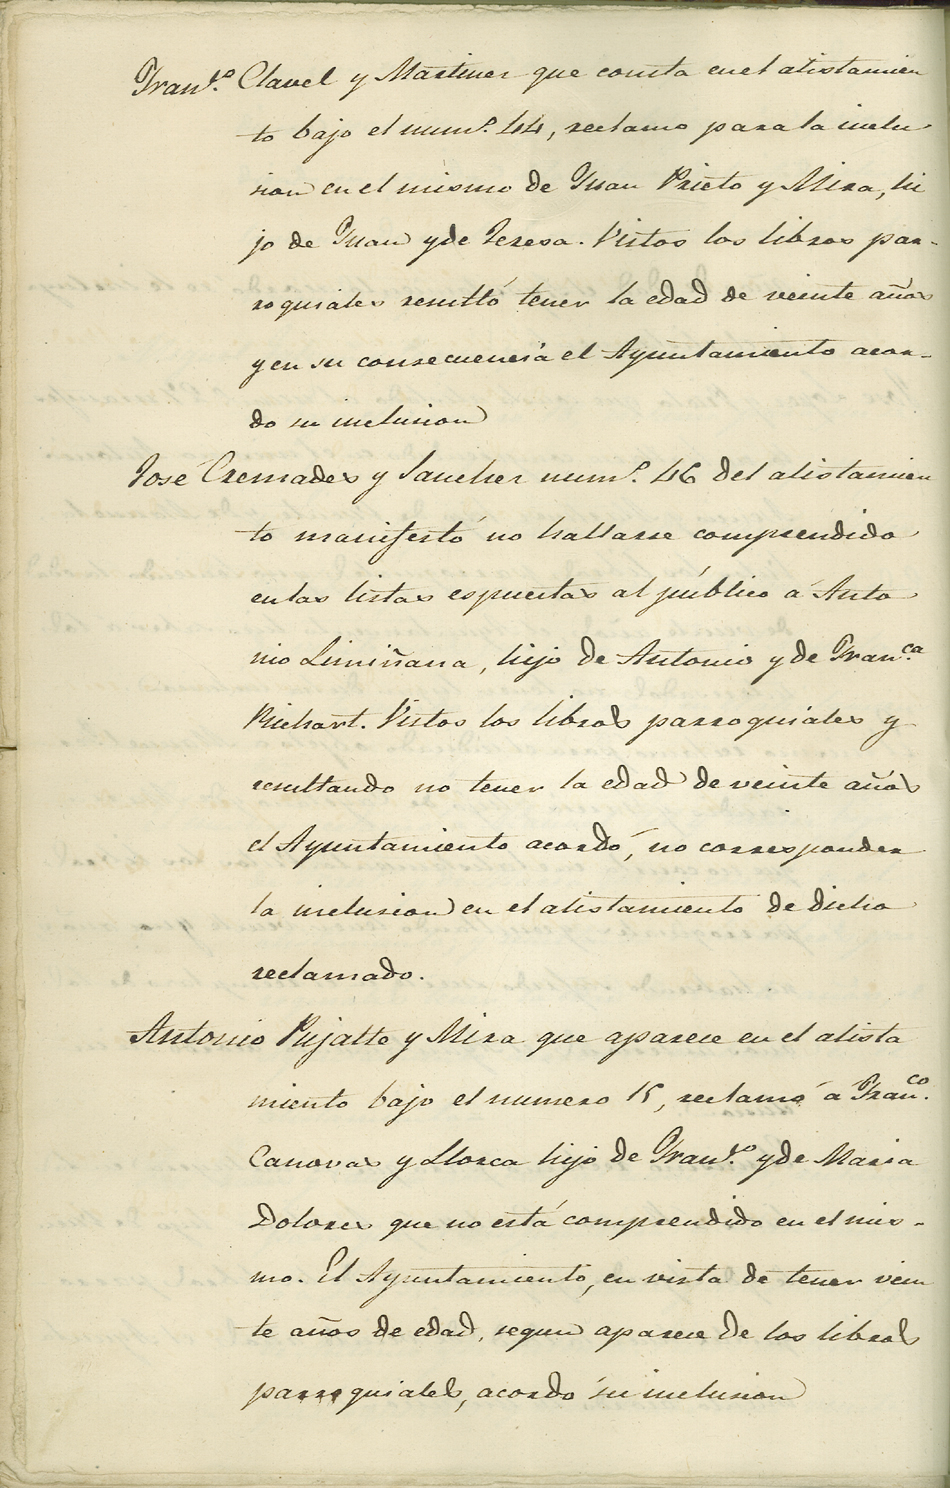 Fran.co Clavel y Martinez que consta en el alistamien
to bajo el num.o 44, reclamo para la inclu
sion en el mismo de Juan Prieto y Mira, hi
jo de Juan y de Teresa. Vistos los libros par-
roquiales resultó tener la edad de veinte años
y en su consecuencia el Ayuntamiento acor-
do su inclusion
José Cremades y Sanchez num.o 46 del alistamien
to manifestó no hallarse comprendido
en las listas espuestas al público á Anto
nio Limiñana, hijo de Antonio y de Fran.ca
Richart. Vistos los libros parroquiales y
resultando no tener la edad de veinte años
el Ayuntamiento acordó, no corresponder
la inclusion en el alistamiento de dicho
reclamado.
Antonio Pujalte y Mira que aparece en el alista
miento bajo el numero 15, reclamó á Fran.co
Canovas y Llorca hijo de Fran.co y de Maria
Dolores que no está comprendido en el mis-
mo. El Ayuntamiento, en vista de tener vein
te años de edad, segun aparece de los libros
parroquiales, acordo su inclusion